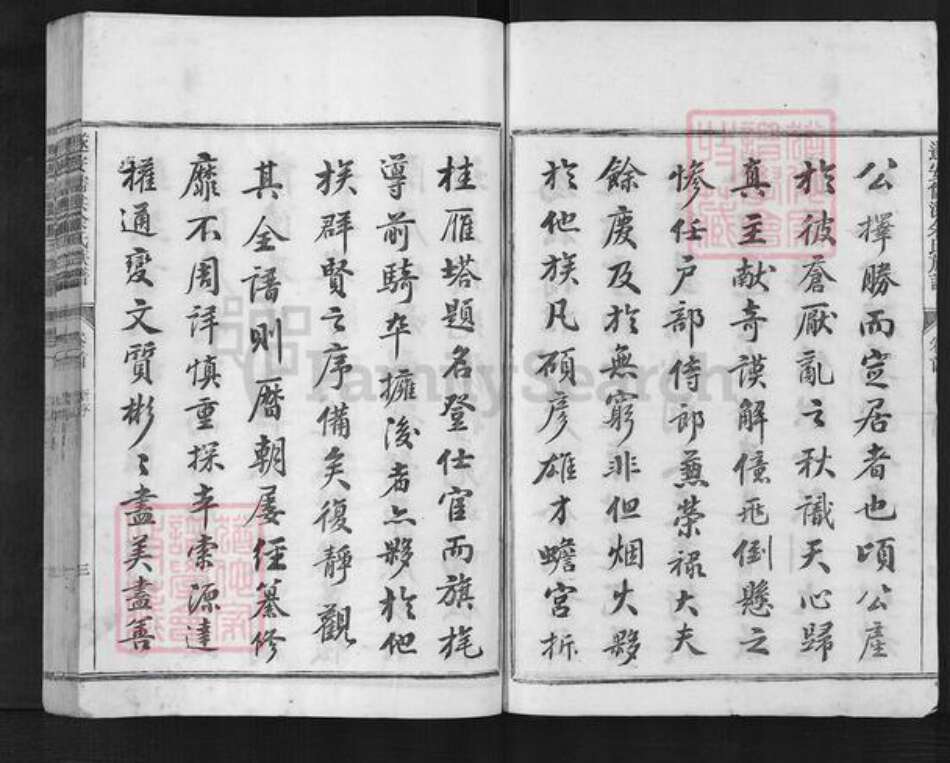 公擇勝而定居者也頃公產
於彼蒼厭亂之秋識天心歸
真主献奇謨解億兆倒懸之
慘任戶部侍郎兼榮祿大夫
餘慶及於無窮非但烟火夥
於他族凡碩彦雄才蟾宮折
桂雁塔題名登仕宦而旗旄
導前騎卒擁後者亦夥於他
族群賢之序備矣復靜觀
其全譜則曆朝屡經纂修
靡不周詳慎重探本索源達
權通變文質彬〻盡美盡善
三
FamilySearch